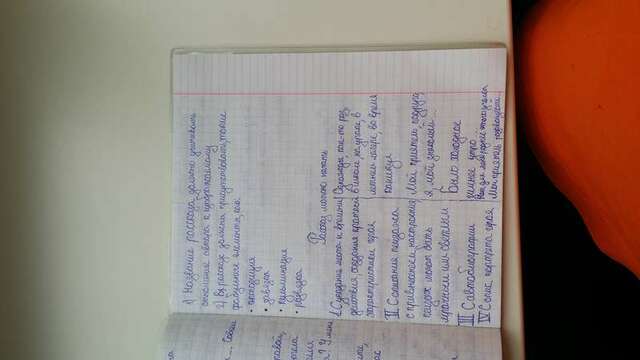 1) Название рассказа должно учитывать
отношение автора к изображаемому
2) В рассказе должны присутствовать такие
фабульные элементы, как:
• экспозиция
• завязка
• кульминация
• развязка
Рассказ можно начать
I. С указания места и времени
действия, создания краткой
характеристики героя
Однажды, как-то раз,
в школе, на уроке, в
летнем лагере, во время
каникул
II С описания пейзажа
с привнесением настроения
пейзаж может быть
мрачным или светлым
Мой приятель, подруга,
я, мой знакомый...
Было холодное
зимнее утро
III С автобиографии
IV С опис. портрета героя
Мой приятель
... Собой
равой,
? У меня
ите,
ас